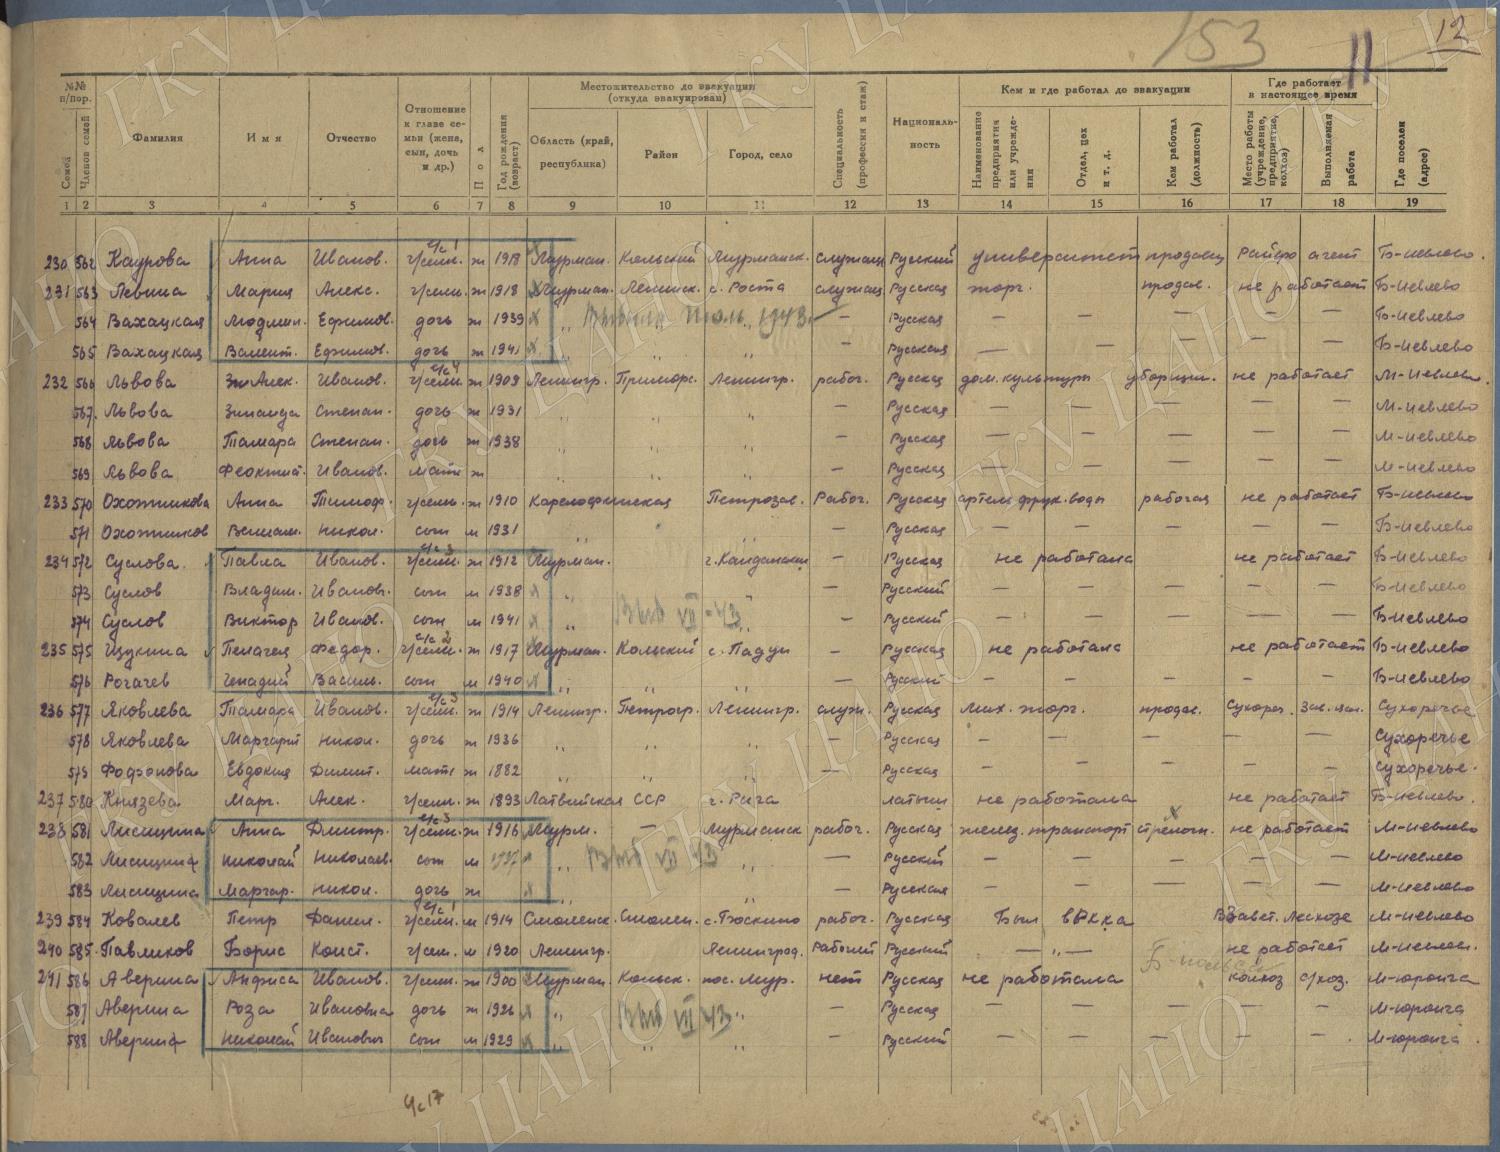 153 11 12
№№ п/пор. Фамилия Имя Отчество Отношение к главе семьи (жена, сын, дочь и др.) Пол Год рождения (возраст) Местожительство до эвакуации (откуда эвакуирован) Специальность (профессия и стаж) Националь-ность Кем и где работал до эвакуации Где работает в настоящее время Где поселен (адрес)
Семей Членов семей Область (край, республика) Район Город, село Наименование предприятия или учрежде-ния Отдел, цех и т. д. Кем работал (должность) Место работы (учреждение, предприятие, колхоз) Выполняемая работа
1 2 3 4 5 6 7 8 9 10 11 12 13 14 15 16 17 18 19
230 562 Каурова Анна Иванов. г/семи. ж 1918 Мурман. Кольский Мурманск. служащ Русский универмаг продавец Райфо агент Б-иевлево.
231 563 Левина Мария Алекс. г/семи. ж 1918 Мурман. Ленинск. с. Роста служащ Русская торг. продав. не работает Б-иевлево
564 Вахацкая Людмил. Ефимов. дочь ж 1939 " " Июль 1943 — Русская — — — — — Б-иевлево
565 Вахацкая Валент. Ефимов. дочь ж 1941 " " " — Русская — — — — — Б-иевлево
232 566 Львова Алек. Иванов. г/семи. ж 1909 Ленингр. Приморс. Ленингр. рабоч. Русская дом. культуры уборщи. не работает М-иевлев.
567. Львова Зинаида Степан. дочь ж 1931 " " " — Русская — — — — — М-иевлево
568 Львова Тамара Степан. дочь ж 1938 " " " — Русская — — — — — М-иевлево
569 Львова Феоктист. Иванов. мать ж " " " — Русская — — — — — М-иевлево
233 570 Охотникова Анна Тимоф. г/семи. ж 1910 Карелофинская Петрозав. Рабоч. Русская артель фрук. воды рабочая не работает Б-иевлево
571 Охотников Вениам. Никол. сын м 1931 " " — Русская — — — — — Б-иевлево
234 572 Суслова. Павла Иванов. г/семи. ж 1912 Мурман. г. Кандалакши — Русская не работала не работает Б-иевлево
573 Суслов Владим. Иванов. сын м 1938 " " — Русский — — — — — Б-иевлево
574 Суслов Виктор Иванов. сын м 1941 " VII-43 " — Русский — — — — — Б-иевлево
235 575 Щукина Пелагея Федор. г/семи. ж 1917 Мурман. Кольский с. Падун — Русская не работала не работает Б-иевлево
576 Рогачев Генадий Василь. сын м 1940 " " " — Русский — — — — — Б-иевлево
236 577 Яковлева Тамара Иванов. г/семи. ж 1914 Ленингр. Петрогр. Ленингр. служ. Русская торг. продав. Сухореч. Сухоречье
578 Яковлева Маргарит Никол. дочь ж 1936 " " " — Русская — — — — — Сухоречье
579 Евдокия Димит. мать ж 1882 " " " — Русская — — — — — Сухоречье.
237 580 Князева Марг. Алек. г/семи. ж 1893 Латвийская ССР г. Рига латыш не работала не работает Б-иевлево.
238 581 Лисицина Анна Дмитр. г/семи. ж 1916 Мурм. — Мурманск рабоч. Русская желез. транспорт стрелочн. не работает М-иевлево
582 Лисицина Николай Николаев. сын м 1937 " VII 43 " — Русский — — — — — М-иевлево
583 Лисицина Маргар. Никол. дочь ж " — Русская — — — — — М-иевлево
239 584 Ковалев Петр Данил. г/семи. м 1914 Смоленск. Смолен. рабоч. Русская Был в РККА Лесхозе М-иевлево
240 585. Павликов Борис Конст. г/сем. м 1920 Ленингр. Ленинград. Рабочий Русский — " — не работает М-иевлев.
241 586 Аверина Анфиса Иванов. г/семи. ж 1900 Мурман. Кольск. пос. Мур. нет Русская не работала колхоз с/хоз. М-юронга
587 Аверина Роза Ивановна дочь ж 1926 " VII 43 " — Русская — — — — — М-юронга
588 Аверина Николай Иванович сын м 1929 " " " — Русский — — — — М-юронга
4/с 17
ГКУ ЦАНО